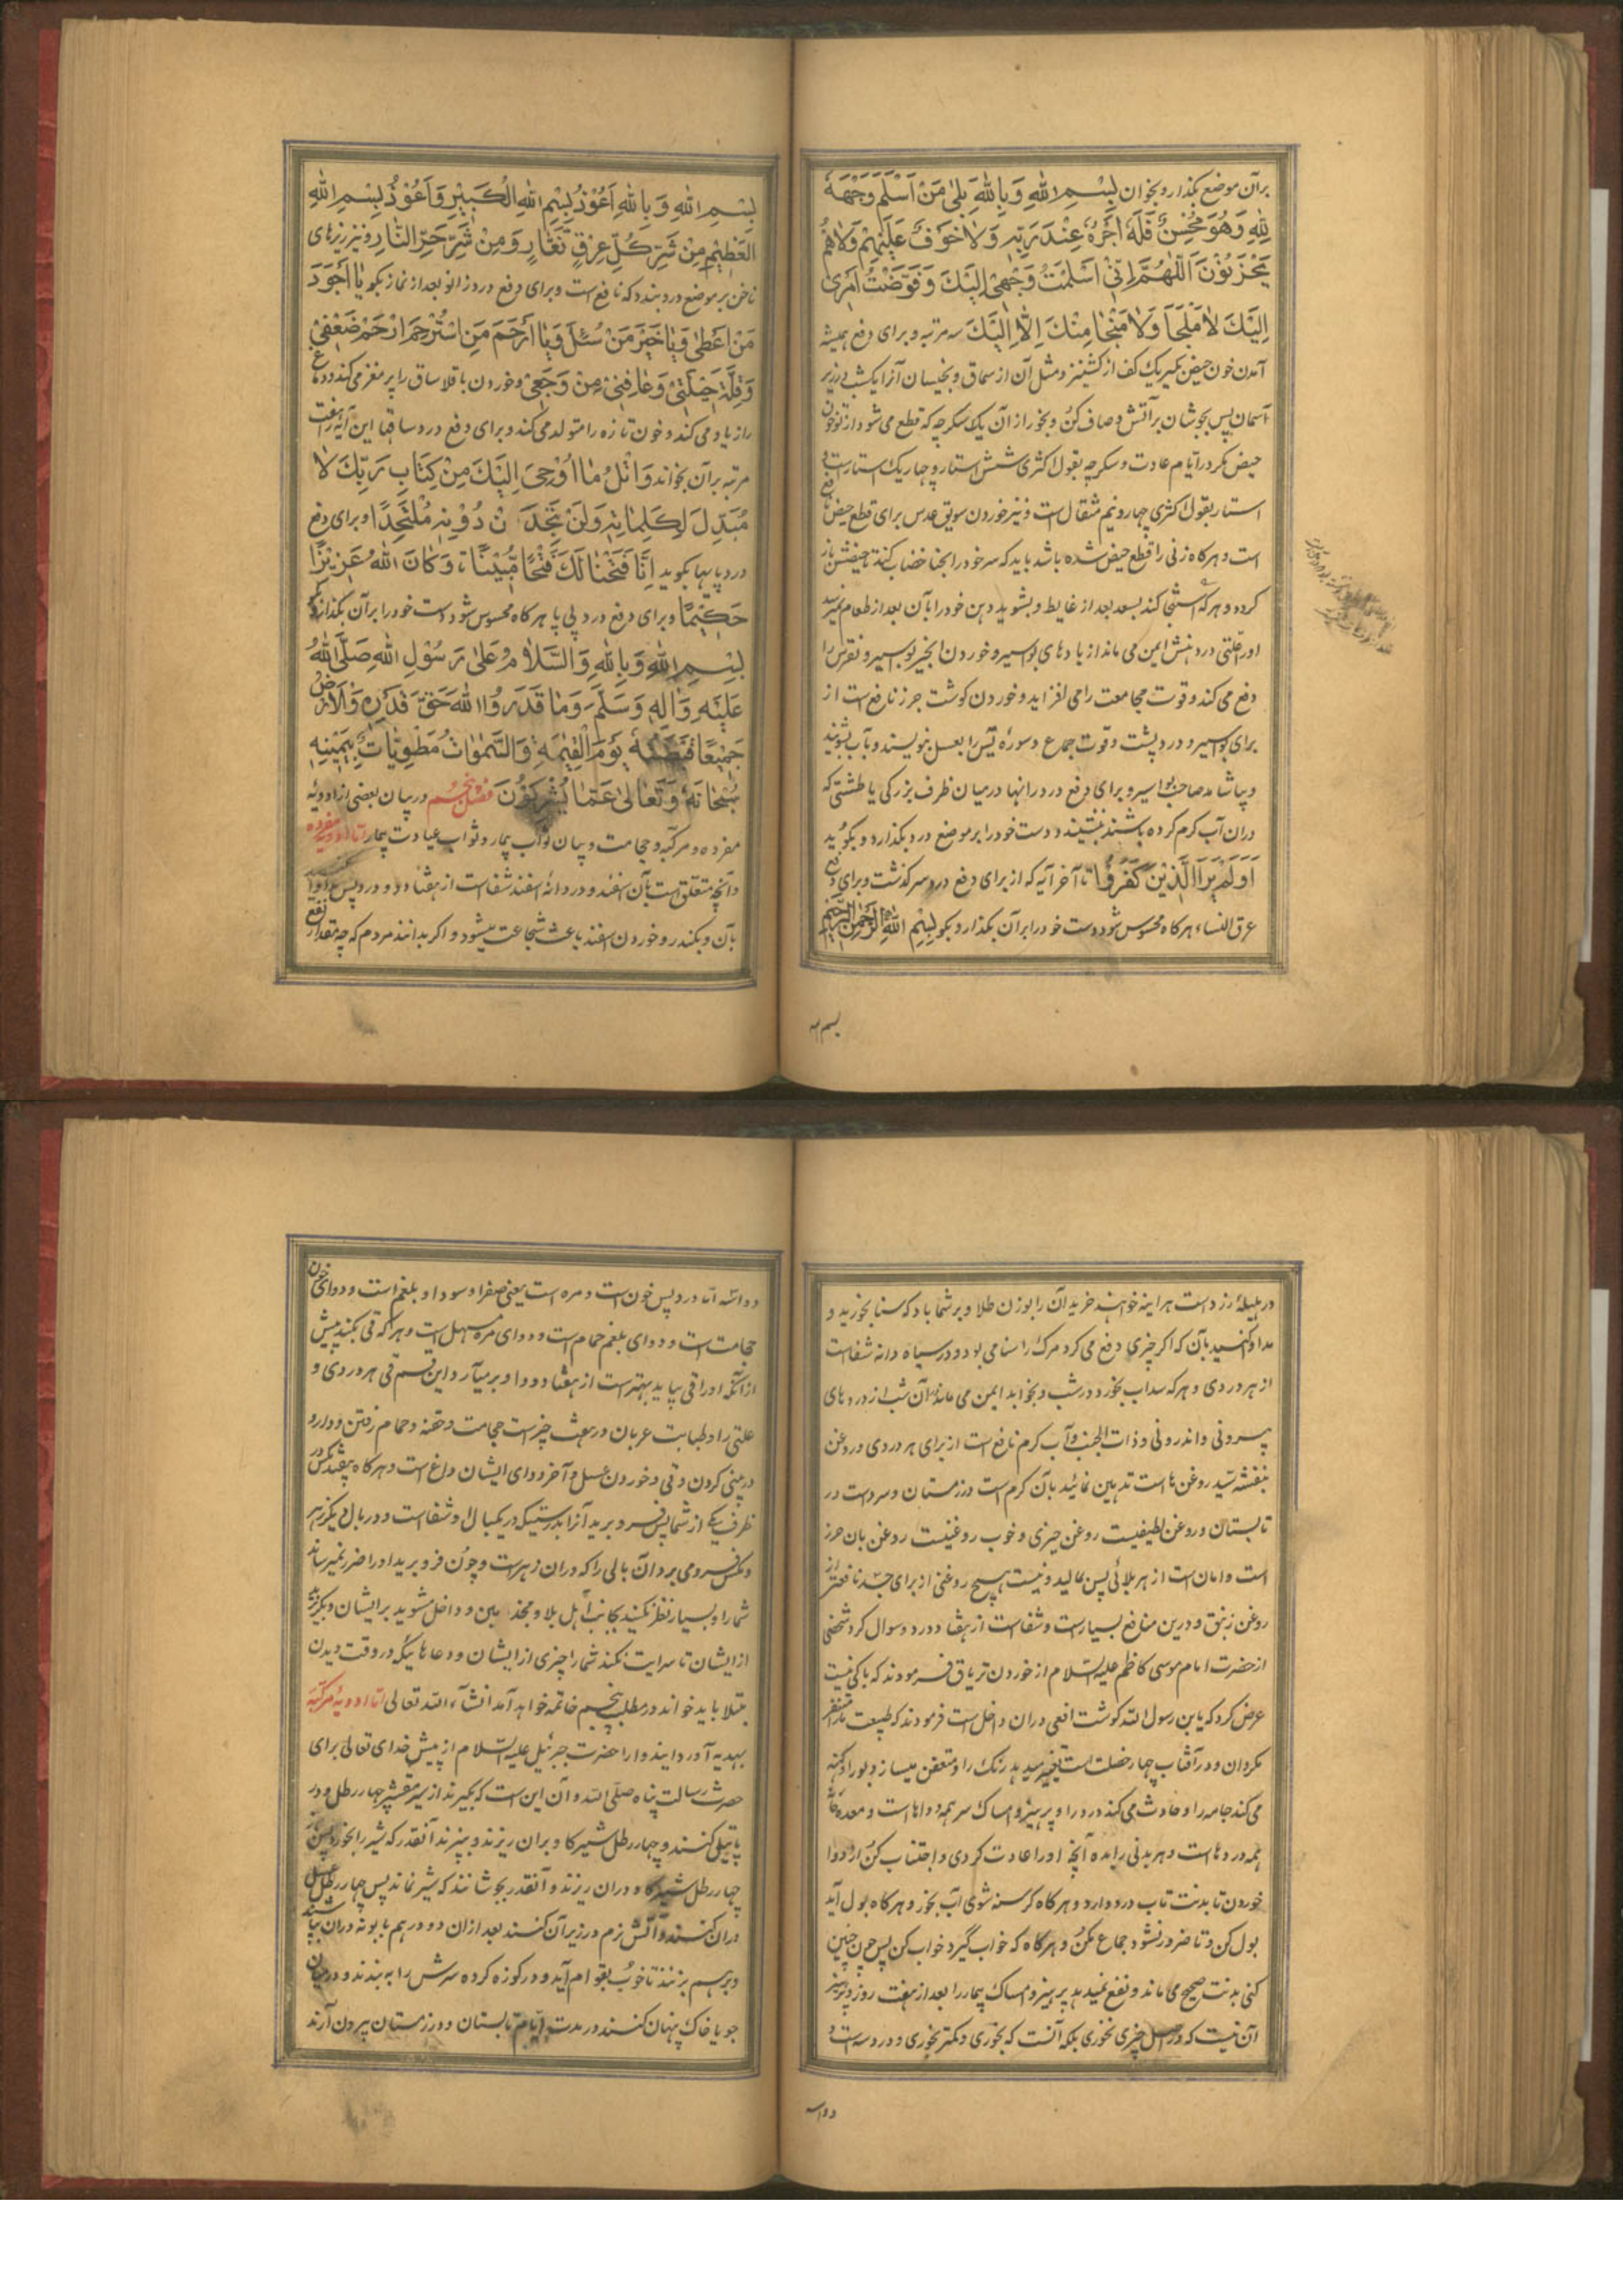 برآن موضع بگذار و بخوان بِسْمِ اللهِ وَبِاللهِ بَلیٰ مَنْ اَسْلَمَ وَجْهَهُ
لِلّٰهِ وَهُوَ مُحْسِنٌ فَلَهُ اَجْرُهُ عِنْدَ رَبِّهٖ وَلا خَوْفٌ عَلَیْهِمْ وَلا هُمْ
یَحْزَنُوْنَ اَللّٰهُمَّ اِنّیْ اَسْلَمْتُ وَجْهِیْ اِلَیْكَ وَفَوَّضْتُ اَمْرِیْ
اِلَیْكَ لا مَلْجَاَ وَلا مَنْجا مِنْكَ اِلّا اِلَیْكَ سه مرتبه و برای دفع همیشه
آمدن خون حیض بگیر یك کف از کشنیز و مثل آن از سماق و بخیسان آنرا یکشب در زیر
آسمان پس بجوشان برآتش و صاف کن و بخور از آن یك سکرجه که قطع می شود از تو خون
حیض مگر در ایام عادت و سکرجه بقول اکثری شش استار و چهار یك استارست و
استار بقول اکثری چهار و نیم مثقال است و نیز خوردن سویق عدس برای قطع حیض نافع
است و هرکاه زنی را قطع حیض شده باشد باید که سر خود را بحنا خضاب کند تا حیضش باز
کردد و هرکه استنجا کند بسعد بعد از غایط و بشوید دهن خود را بآن بعد از طعام نمیرسد
اورا علتی در دهنش ایمن می ماند از بادهای بواسیر و خوردن انجیر بواسیر و نقرس را
دفع می کند و قوت مجامعت را می افزاید و خوردن کوشت جزر نافع است از
برای بواسیر و درد پشت و قوت جماع و سورهٔ یٰس را بعسل بنویسند و بآب بشویند
و بیاشامد صاحب بواسیر و برای دفع درد رانها در میان ظرف بزرکی یا طشتی که
دران آب کرم کرده باشند بنشیند و دست خود را بر موضع درد بگذارد و بگوید
اَوَلَمْ یَرَ الَّذِیْنَ کَفَرُوْا تا آخر آیه که از برای دفع درد سر گذشت و برای دفع
عرق النساء هرکاه محسوس شود دست خود را برآن بگذار و بگو بِسْمِ اللهِ الرَّحْمٰنِ الرَّحِیْمِ
بسم الله
بِسْمِ اللهِ وَبِاللهِ اَعُوْذُ بِسْمِ اللهِ الْکَبِیْرِ وَاَعُوْذُ بِسْمِ اللهِ
الْعَظِیْمِ مِنْ شَرِّ کُلِّ عِرْقٍ نَّعّارٍ وَمِنْ شَرِّ حَرِّ النّارِ و نیز ریزهای
ناخن بر موضع درد بندد که نافع است و برای دفع درد زانو بعد از نماز بگو یا اَجْوَدَ
مَنْ اَعْطیٰ وَیا خَیْرَ مَنْ سُئِلَ وَیا اَرْحَمَ مَنِ اسْتُرْحِمَ ارْحَمْ ضَعْفِیْ
وَقِلَّةَ حِیْلَتِیْ وَعافِنِیْ مِنْ وَجَعِیْ و خوردن باقلا ساق را پر مغز می کند و دماغ
را زیاد می کند و خون تازه را متولد می کند و برای دفع درد ساقها این آیه را هفت
مرتبه برآن بخواند وَاتْلُ ما اُوْحِیَ اِلَیْكَ مِنْ کِتابِ رَبِّكَ لا
مُبَدِّلَ لِکَلِماتِهٖ وَلَنْ تَجِدَ مِنْ دُوْنِهٖ مُلْتَحَدًا و برای دفع
درد پایها بگوید اِنّا فَتَحْنا لَكَ فَتْحًا مُّبِیْنًا تا وَکانَ اللهُ عَزِیْزًا
حَکِیْمًا و برای دفع درد پی پا هرکاه محسوس شود دست خود را برآن بگذار و بگو
بِسْمِ اللهِ وَبِاللهِ وَالسَّلامُ عَلیٰ رَسُوْلِ اللهِ صَلَّی اللهُ
عَلَیْهِ وَاٰلِهٖ وَسَلَّمَ وَما قَدَرُوا اللهَ حَقَّ قَدْرِهٖ وَالْاَرْضُ
جَمِیْعًا قَبْضَتُهُ یَوْمَ الْقِیٰمَةِ وَالسَّمٰواتُ مَطْوِیّاتٌ بِیَمِیْنِهٖ
سُبْحانَهُ وَتَعالیٰ عَمّا یُشْرِکُوْنَ فصل پنجم در بیان بعضی از ادویهٔ
مفرده و مرکبه و حجامت و بیان ثواب بیمار و ثواب عیادت بیمار اما ادویه مفرده
و آنچه متعلق است بآن اسفند و در دانهٔ اسفند شفاست از هفتاد درد پس مداوا
بآن و بکندر و خوردن اسفند باعث شجاعت میشود و اکر بدانند مردم که چه مقدار نفع
در هلیلهٔ زرد است هراینه خواهند خرید آن را بوزن طلا و بر شما باد که سنا بخورید و
مداوا کنید بآن که اکر چیزی دفع می کرد مرك را سنا می بود و در سیاه دانه شفاست
از هر دردی و هرکه سداب بخورد در شب و بخوابد ایمن می ماند دران شب از دردهای
بیرونی و اندرونی و ذات الجنب و آب کرم نافع است از برای هر دردی و روغن
بنفشه سید روغن هاست تدهین نمائید بآن کرم است در زمستان و سرد است در
تابستان و روغن لطیفیست روغن خیری و خوب روغنیست روغن بان حرز
است و امان است از هر بلائی پس بمالید و نیست هیچ روغنی از برای جسد نافعتر از
روغن زنبق و درین منافع بسیارست و شفاست از هفتاد درد و سوال کرد شخصی
از حضرت امام موسی کاظم علیه السلام از خوردن تریاق فرمودند که باکی نیست
عرض کرد که یابن رسول الله کوشت افعی دران داخل است فرمودند که طبیعت مارا متنفر
مکردان و در آفتاب چهار خصلت است تغییر میدهد رنك را و متعفن میسازد بو را و کهنه
می کند جامه را و حادث می کند درد را و پرهیز و امساك سر همه دواهاست و معده خانهٔ
همه دردهاست و هر بدنی را بده آنچه اورا عادت کردی و اجتناب کن از دوا
خوردن تا بدنت تاب درد دارد و هرکاه کرسنه شوی آب بخور و هرکاه بول آید
بول کن و تا ضرور نشود جماع مکن و هرکاه که خواب گیرد خواب کن پس چون چنین
کنی بدنت صحیح می ماند و نفع نمیدهد پرهیز و امساك بیمار را بعد از هفت روز و پرهیز
آن نیست که در اصل چیزی نخوری بلکه آنست که بخوری و کمتر بخوری و درد سه است و
دوا سه
دوا سه اما درد پس خون است و مره است یعنی صفرا و سودا و بلغم است و دوای خون
حجامت است و دوای بلغم حمام است و دوای مره مسهل است و هرکه قی بکند پیش
از آنکه اورا قی بیاید بهتر است از هفتاد دوا و بر می آرد این قسم قی هر دردی و
علتی را و طبابت عربان در هفت چیز است حجامت و حقنه و حمام رفتن و دارو
در بینی کردن و قی و خوردن عسل و آخر دوای ایشان داغ است و هرکاه بیفتد مکس در
ظرف یکی از شما پس فرو برید آنرا بدرستیکه در یکبال او شفاست و در بال دیگر زهر
و مکس فرو می برد آن بالی را که دران زهرست و چون فرو برید اورا ضرر نمیرساند
شمارا و بسیار نظر نکنید بجانب اهل بلا و مجذومین و داخل مشوید برایشان و بگریزید
از ایشان تا سرایت نکند شما را چیزی از ایشان و دعاهائیکه در وقت دیدن
مبتلا باید خواند در مطلب پنجم خاتمه خواهد آمد انشاء الله تعالی اما ادویهٔ مرکبه
بهدیه آورد ایندوا را حضرت جبرئیل علیه السلام از پیش خدای تعالی برای
حضرت رسالت پناه صلی الله و آن این است که بگیرند از سیر مقشر چهار رطل و در
پاتیلی کنند و چهار رطل شیر کاو بران ریزند و بپزند آنقدر که شیر را بخورد پس باز
چهار رطل شیر کاو دران ریزند و آنقدر بجوشانند که شیر نماند پس چهار رطل عسل
دران کنند و آتش نرم در زیر آن کنند بعد ازان دو درهم بابونه دران بپاشند
و برهم بزنند تا خوب بقوام آید و در کوزه کرده سرش را ببندند و در میان
جو یا خاك پنهان کنند در مدت ایام تابستان و در زمستان بیرون آرند